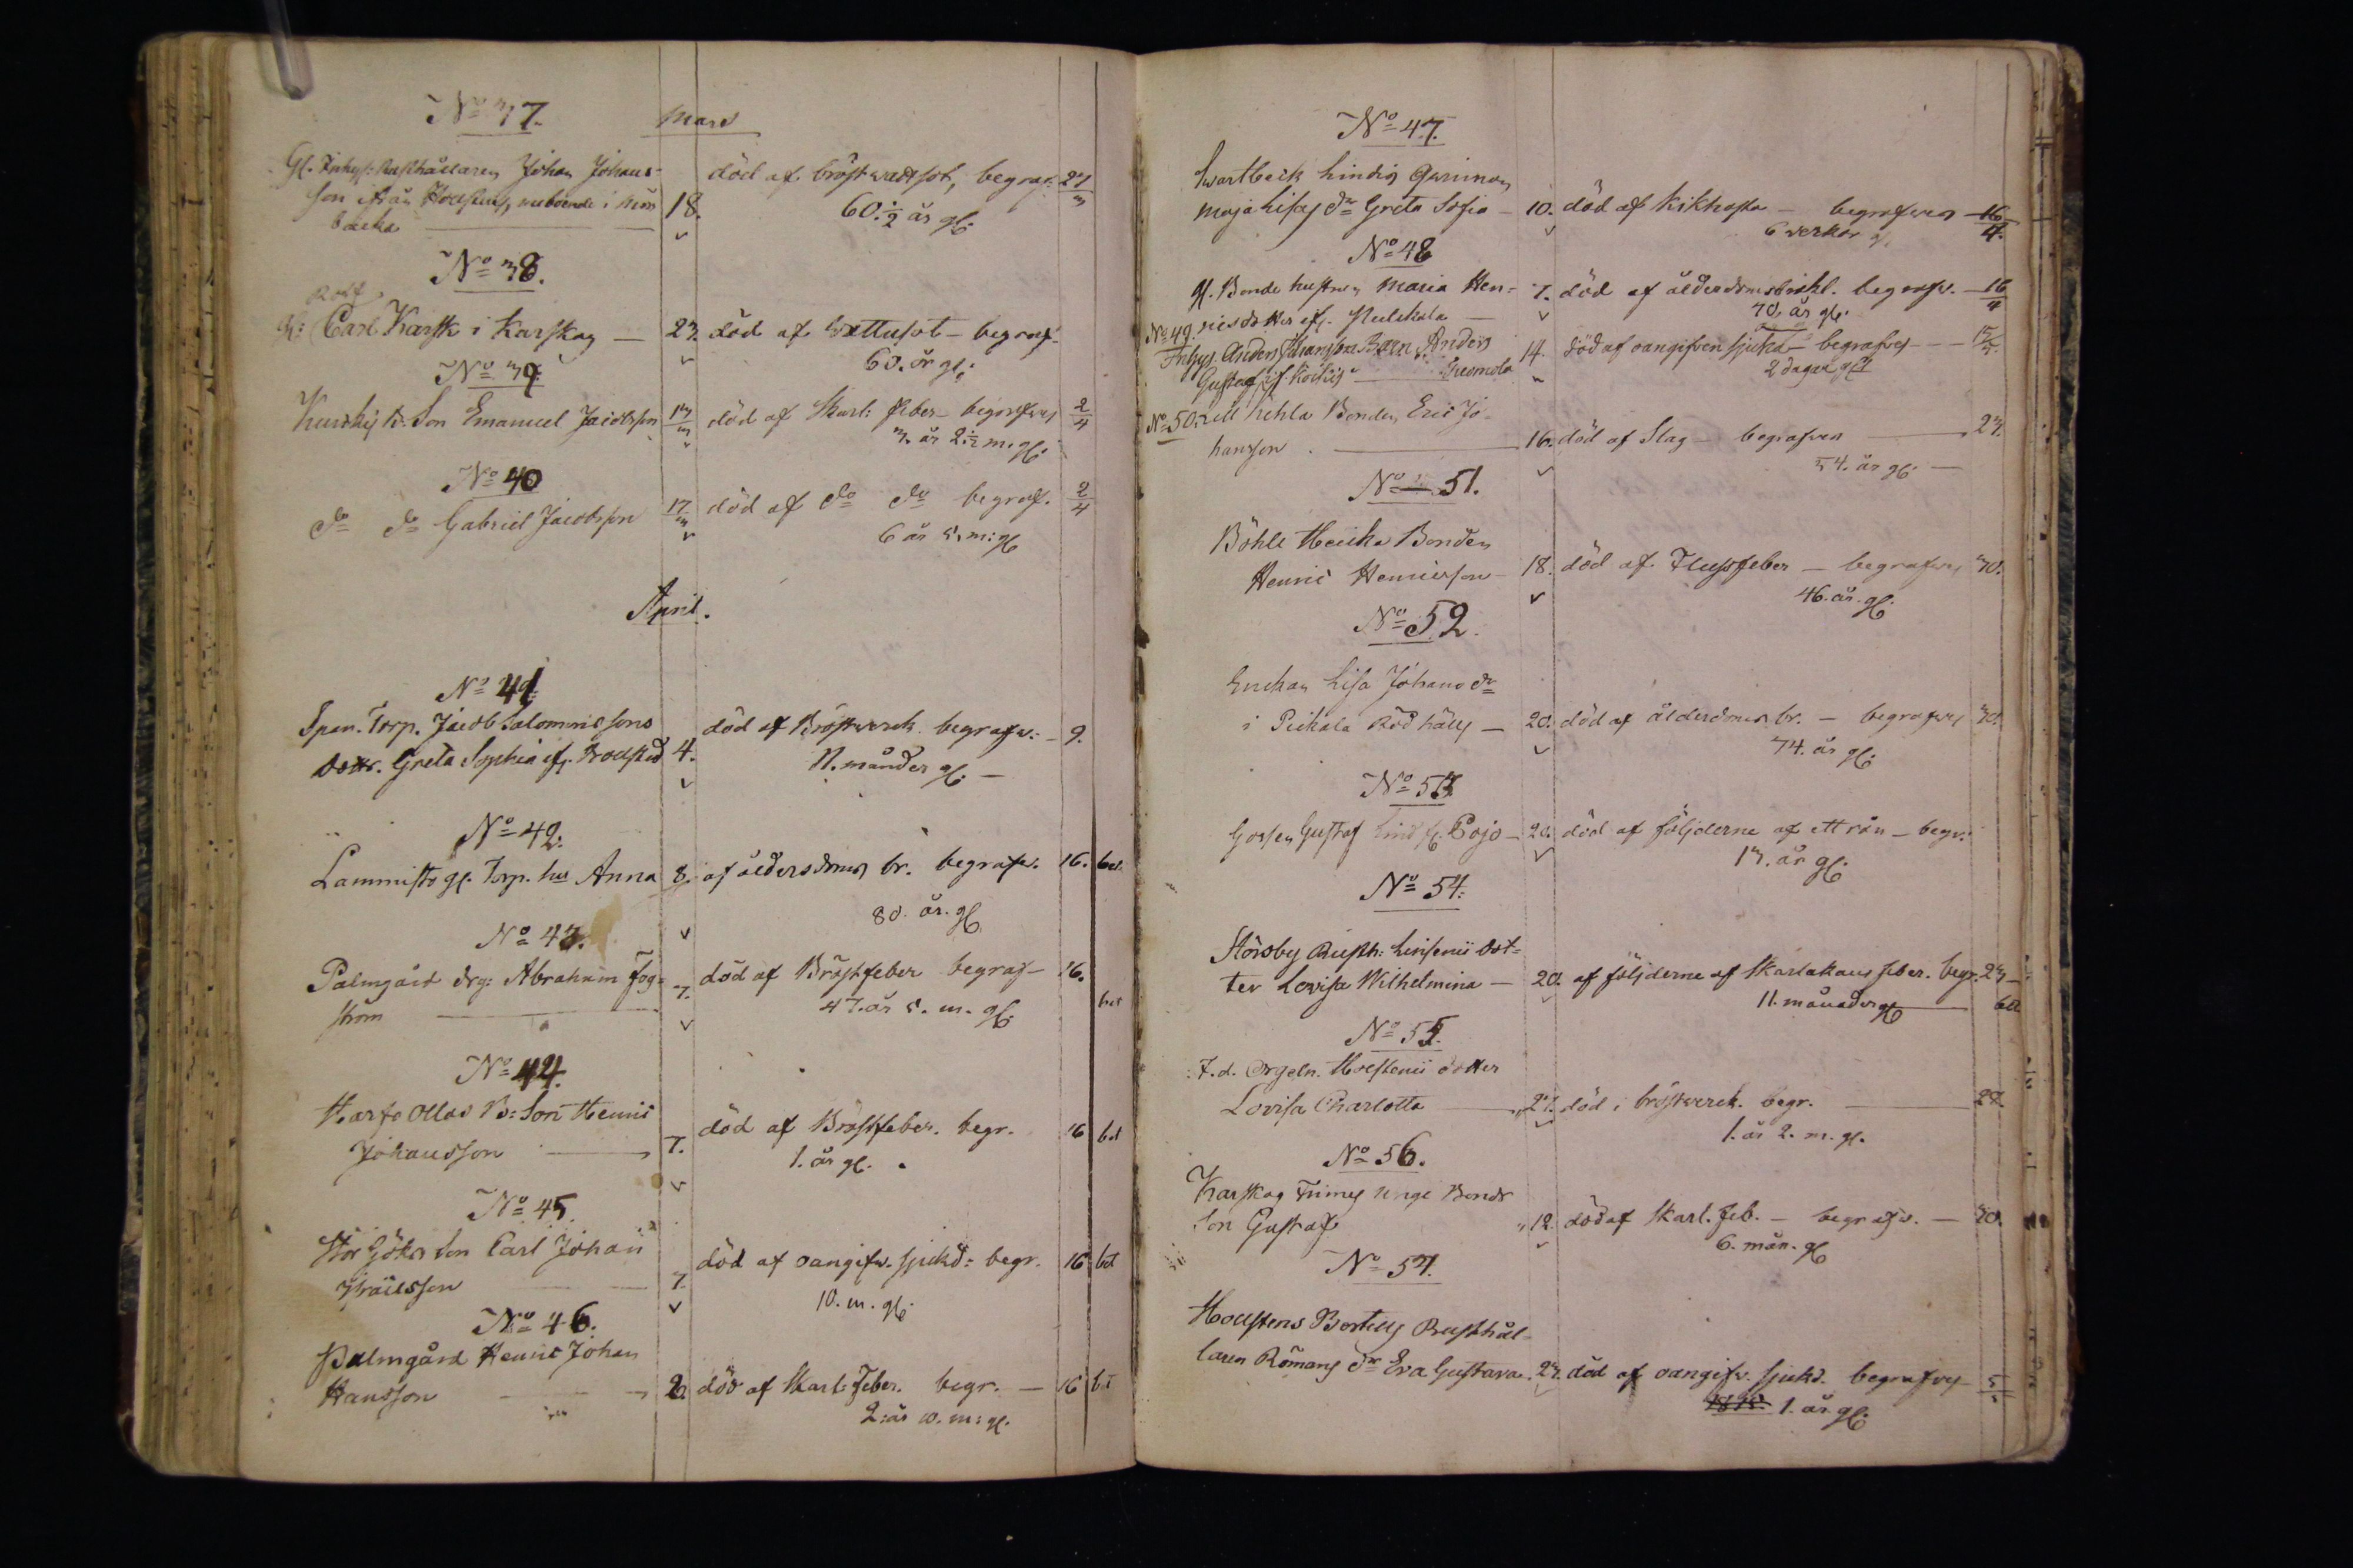 No 37.
Mars
Gl. Inhys: Rusthållaren Johan Johans-
son ifrån Houstens, neboende i
backa 18.
död af bröstwattsot, begraf: 23/3
60 1/2 år gl.
No 38.
Rotf
Gl: Carl Karsk i Karskog — 23. död af Wattusot — begraf.
60. år gl.
No 39.
Kuschis B. Son Emanuel Jacobsson 13/3 död af Skarl: feber — begrafves 2/4
3. år 2 1/2 m. gl.
No 40
do do Gabriel Jacobsson 17/3 död af do do begraf. 2/4
6 år 5. m: gl
April.
No 41.
Span. Torp. Jacob Salomonssons
Dottr. Greta Sophia ifr. Broustad 4.
död af Bröstwerck begrafw: — 9.
11. månder gl. —
No 42.
Lammisto gl. Torp. hu Anna 8. af ålderdoms br. begrafw. 16. bet.
80. år. gl
No 43.
Palmgård drg: Abraham Fog=
ström 7.
död af Bröstfeber begraf — 16.
bet
47. år 5. m. gl.
No 44.
Harfo Ollas B: Son Henric
Johansson 7.
död af Bröstfeber. begr. 16 bet
1. år gl.
No 45.
Stor Göks Son Carl Johan
Isräelsson 7.
död af oangifw. sjukd: begr. 16 bet
10. m. gl.
No 46.
Palmgård Henric Johan
Hansson 2. död af Skarl: Feber. begr. — 16 bet
2: år 10. m: gl.
No 47.
Swartbeck Lindis Qwinnan
Maja Lisas dr Greta Sofia — 10. död af Kikhosta — begrafwen — 16/4.
6 veckor gl.
No 48
gl. Bonde hustrun Maria Hen=
ricsdotter ifr. — 7. död af ålderdomsbräckl. begrafw. — 16/4
70. år gl.
No 49.
Inhys. Anders Johansson Barn Anders
Gustaf if. 14.
död af oangifven sjukd — begrafves —
2 dagar gl
No 50. Bonden Eric Jo-
hansson — 16. död af Slag — begrafven — 23.
54. år gl. —
No 51.
Böhle Heicka Bonden
Henric Henricsson — 18. död af Flussfeber — begrafves 30.
46. år. gl.
No 52.
Enckan Lisa Johans dr
i Peikala Rödhäll — 20. död af ålderdoms br. — begrafves 30.
74. år gl.
No 53.
Gossen Gustaf Lind fr. Pojo — 20. död af följderne af ett rån — begr.
13. år gl.
No 54.
Störsby Rusth: Linsenii dot=
ter Lovisa Wilhelmina — 20. af följderne af Skarlakans feber. begr. 23 —
11. månader gl — bet
No 55.
F. d. Orgeln. Holstenii dotter
Lovisa Charlotta — 21. död i bröstwerck. begr. — 28.
1. år 2. m. gl.
No 56.
Karskog Finnes unge Bonds
Son Gustaf 12. död af Skarl. feb. — begrafw. — 30.
6. mån. gl
No 57.
Houstens Bertells Rusthål-
laren Römans dr Eva Gustava. 23. död af oangifv. sjukd. begrafves 5/5
1. år gl.